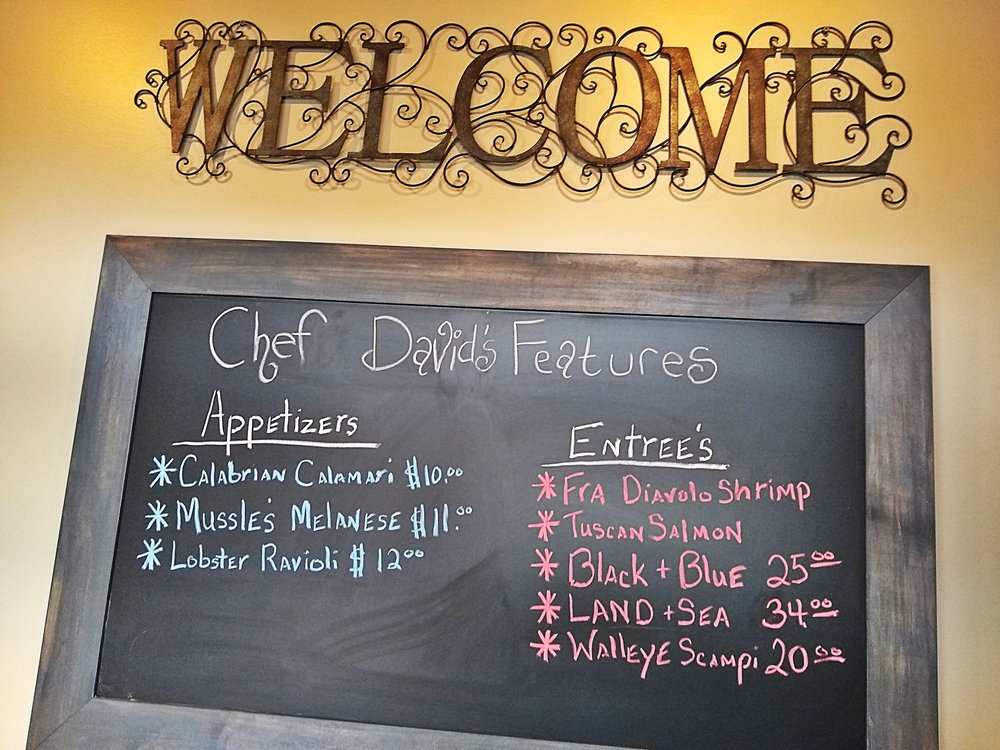 WELCOME
Chef David's Features
Appetizers
* Calabrian Calamari $10.00
* Mussle's Melanese $11.00
* Lobster Ravioli $12.00
Entree's
* Fra Diavolo Shrimp
* Tuscan Salmon
* Black + Blue 25.00
* LAND + SEA 34.00
* Walleye Scampi 20.00